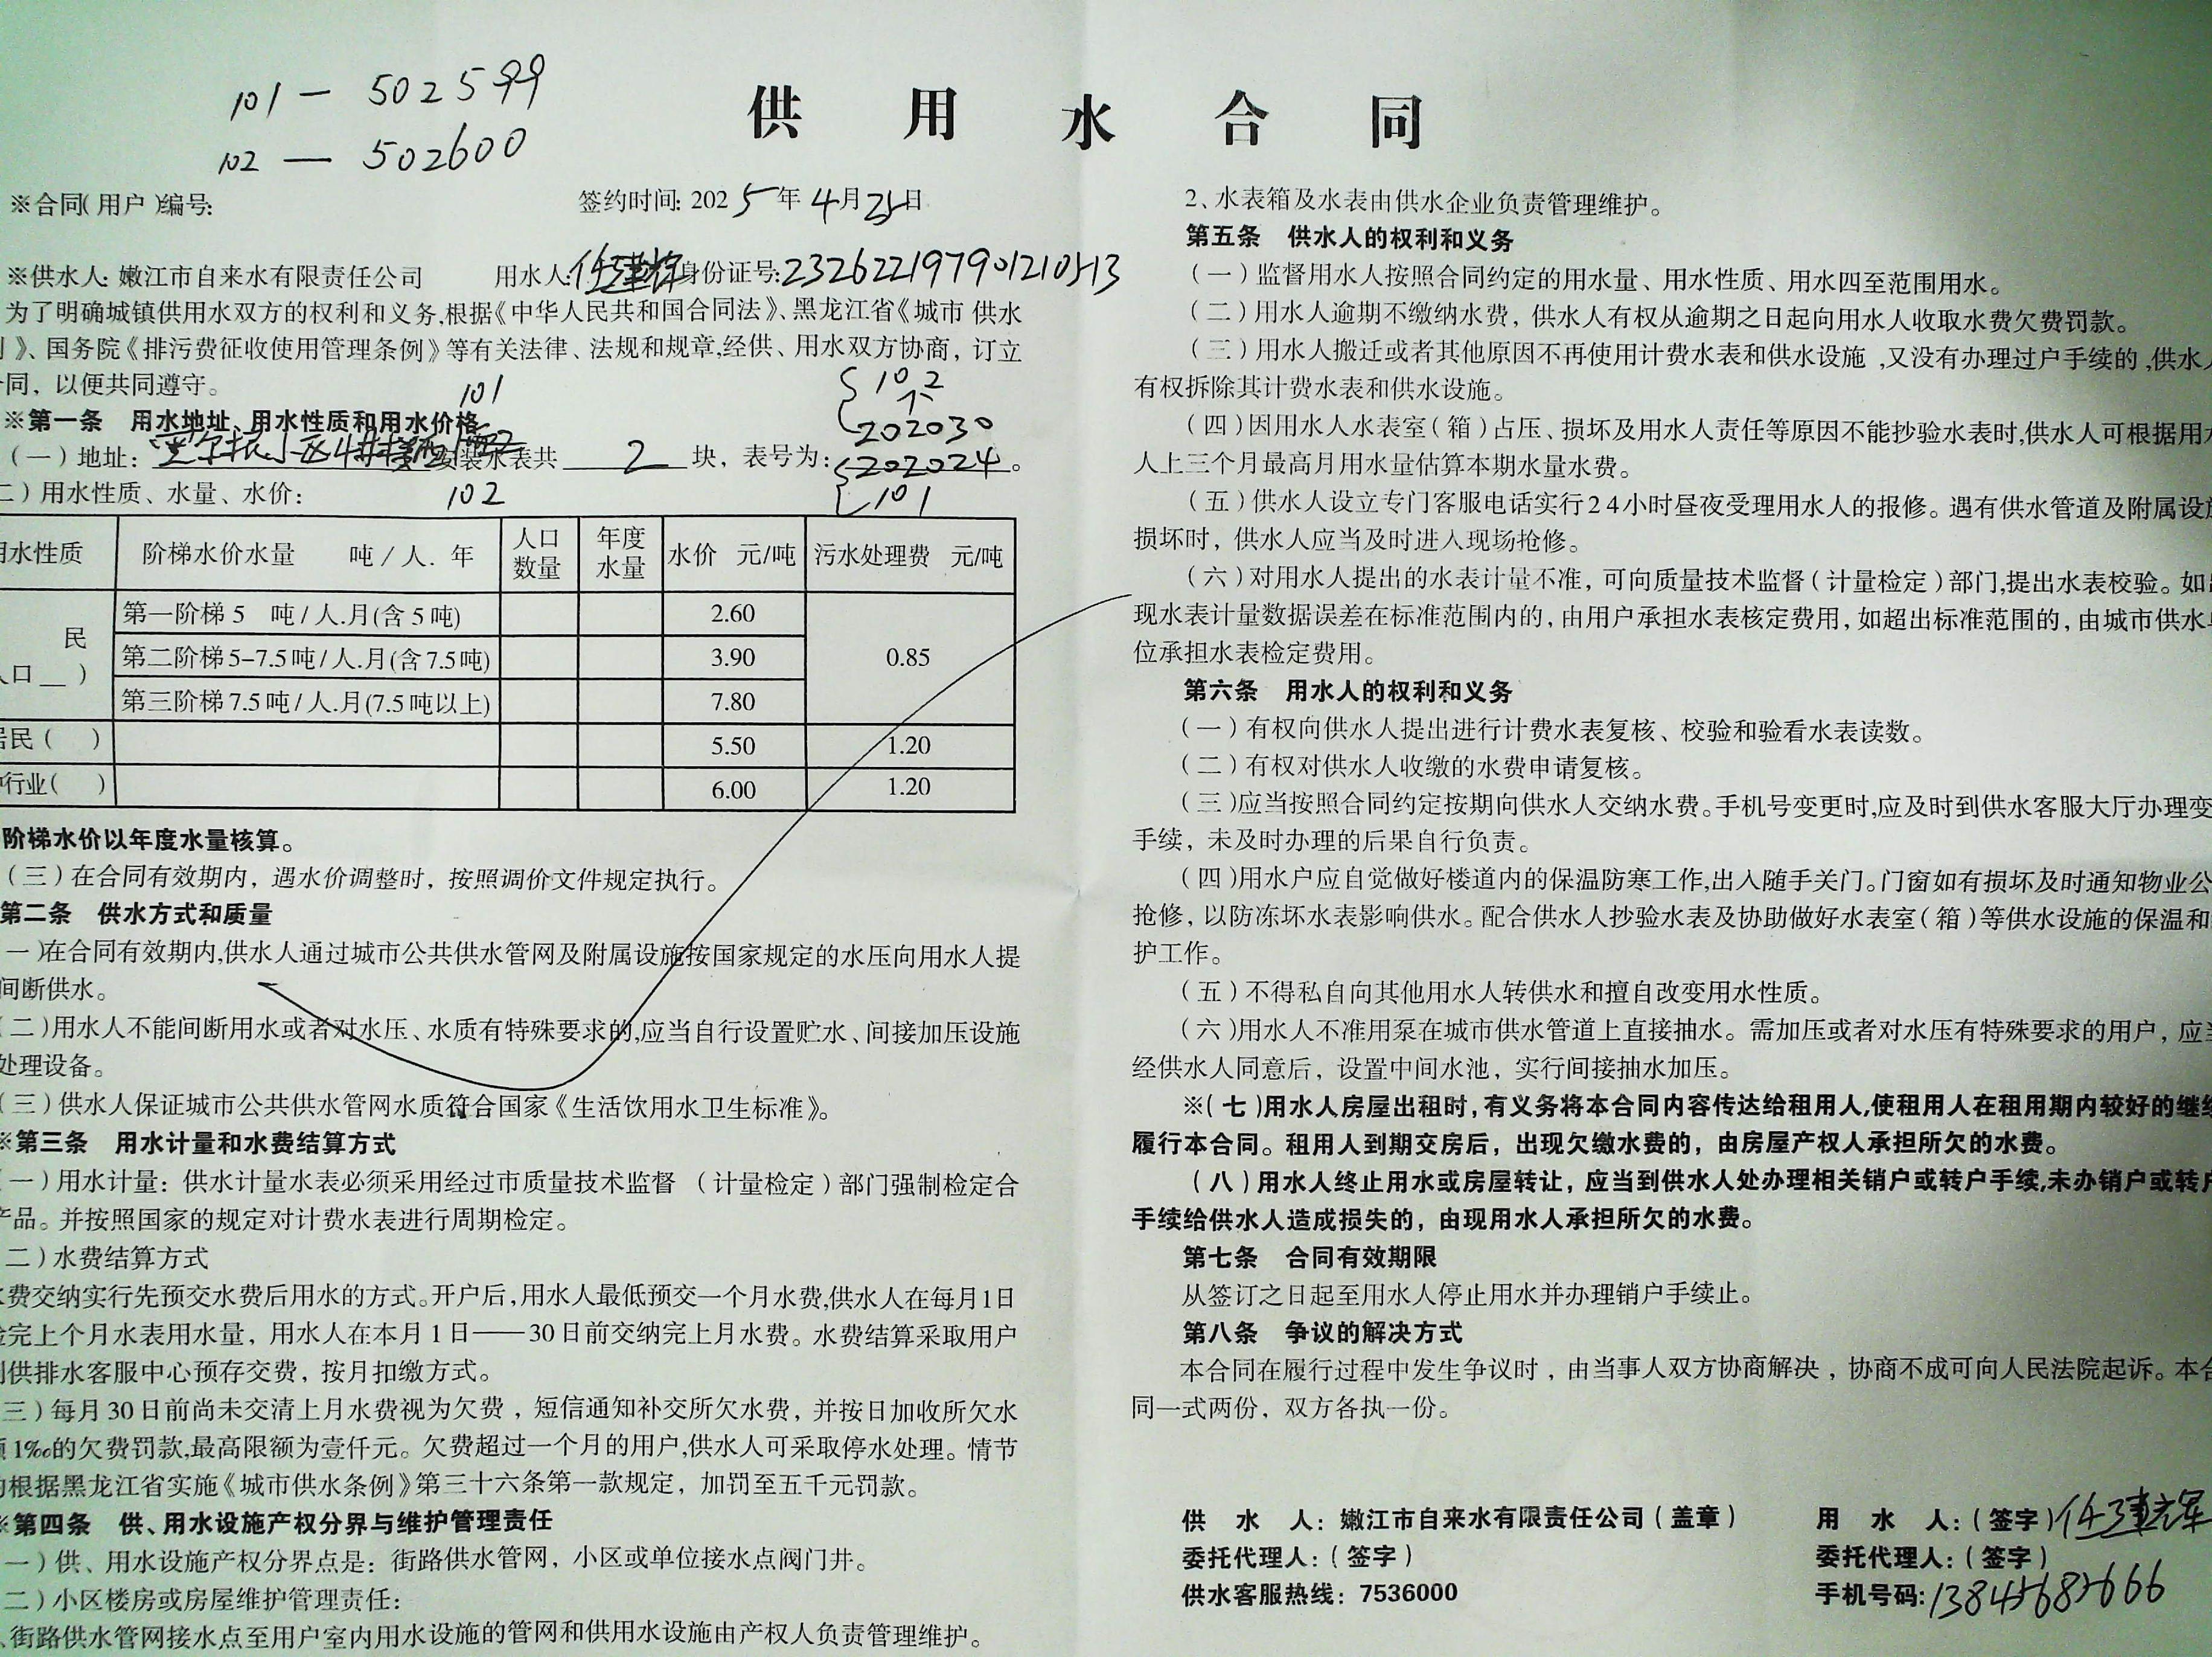 101 — 502599
102 — 502600
供用水合同
※合同(用户)编号:
签约时间: 2025年4月 日
※供水人: 嫩江市自来水有限责任公司 用水人: 任建辉 身份证号:
为了明确城镇供用水双方的权利和义务,根据《中华人民共和国合同法》、黑龙江省《城市 供水
》、国务院《排污费征收使用管理条例》等有关法律、法规和规章,经供、用水双方协商，订立
同，以便共同遵守。
101
※第一条 用水地址、用水性质和用水价格
102
个
202030
(一)地址: 小区 安装水表共 2 块，表号为: 202024。
101
二)用水性质、水量、水价:
102
用水性质 阶梯水价水量 吨/人.年 人口数量 年度水量 水价 元/吨 污水处理费 元/吨
民
人口__)
第一阶梯5 吨/人.月(含5吨) 2.60
第二阶梯5-7.5吨/人.月(含7.5吨) 3.90 0.85
第三阶梯7.5吨/人.月(7.5吨以上) 7.80
居民( ) 5.50 1.20
行业( ) 6.00 1.20
阶梯水价以年度水量核算。
(三)在合同有效期内，遇水价调整时，按照调价文件规定执行。
第二条 供水方式和质量
一)在合同有效期内,供水人通过城市公共供水管网及附属设施按国家规定的水压向用水人提
间断供水。
(二)用水人不能间断用水或者对水压、水质有特殊要求的,应当自行设置贮水、间接加压设施
处理设备。
(三)供水人保证城市公共供水管网水质符合国家《生活饮用水卫生标准》。
※第三条 用水计量和水费结算方式
一)用水计量：供水计量水表必须采用经过市质量技术监督 (计量检定)部门强制检定合
产品。并按照国家的规定对计费水表进行周期检定。
二)水费结算方式
水费交纳实行先预交水费后用水的方式。开户后,用水人最低预交一个月水费,供水人在每月1日
完上个月水表用水量，用水人在本月1日——30日前交纳完上月水费。水费结算采取用户
供排水客服中心预存交费，按月扣缴方式。
三)每月30日前尚未交清上月水费视为欠费，短信通知补交所欠水费，并按日加收所欠水
1‰的欠费罚款,最高限额为壹仟元。欠费超过一个月的用户,供水人可采取停水处理。情节
根据黑龙江省实施《城市供水条例》第三十六条第一款规定，加罚至五千元罚款。
※第四条 供、用水设施产权分界与维护管理责任
一)供、用水设施产权分界点是：街路供水管网，小区或单位接水点阀门井。
二)小区楼房或房屋维护管理责任:
、街路供水管网接水点至用户室内用水设施的管网和供用水设施由产权人负责管理维护。
2、水表箱及水表由供水企业负责管理维护。
第五条 供水人的权利和义务
(一)监督用水人按照合同约定的用水量、用水性质、用水四至范围用水。
(二)用水人逾期不缴纳水费，供水人有权从逾期之日起向用水人收取水费欠费罚款。
(三)用水人搬迁或者其他原因不再使用计费水表和供水设施,又没有办理过户手续的,供水人
有权拆除其计费水表和供水设施。
(四)因用水人水表室(箱)占压、损坏及用水人责任等原因不能抄验水表时,供水人可根据用水
人上三个月最高月用水量估算本期水量水费。
(五)供水人设立专门客服电话实行24小时昼夜受理用水人的报修。遇有供水管道及附属设施
损坏时，供水人应当及时进入现场抢修。
(六)对用水人提出的水表计量不准，可向质量技术监督(计量检定)部门,提出水表校验。如出
现水表计量数据误差在标准范围内的，由用户承担水表核定费用，如超出标准范围的，由城市供水单
位承担水表检定费用。
第六条 用水人的权利和义务
(一)有权向供水人提出进行计费水表复核、校验和验看水表读数。
(二)有权对供水人收缴的水费申请复核。
(三)应当按照合同约定按期向供水人交纳水费。手机号变更时,应及时到供水客服大厅办理变
手续，未及时办理的后果自行负责。
(四)用水户应自觉做好楼道内的保温防寒工作,出入随手关门。门窗如有损坏及时通知物业公
抢修，以防冻坏水表影响供水。配合供水人抄验水表及协助做好水表室(箱)等供水设施的保温和
护工作。
(五)不得私自向其他用水人转供水和擅自改变用水性质。
(六)用水人不准用泵在城市供水管道上直接抽水。需加压或者对水压有特殊要求的用户，应当
经供水人同意后，设置中间水池，实行间接抽水加压。
※(七)用水人房屋出租时,有义务将本合同内容传达给租用人,使租用人在租用期内较好的继续
履行本合同。租用人到期交房后，出现欠缴水费的，由房屋产权人承担所欠的水费。
(八)用水人终止用水或房屋转让，应当到供水人处办理相关销户或转户手续,未办销户或转户
手续给供水人造成损失的，由现用水人承担所欠的水费。
第七条 合同有效期限
从签订之日起至用水人停止用水并办理销户手续止。
第八条 争议的解决方式
本合同在履行过程中发生争议时，由当事人双方协商解决，协商不成可向人民法院起诉。本合
同一式两份，双方各执一份。
供 水 人: 嫩江市自来水有限责任公司(盖章) 用 水 人:(签字)任建辉
委托代理人:(签字) 委托代理人:(签字)
供水客服热线: 7536000 手机号码: